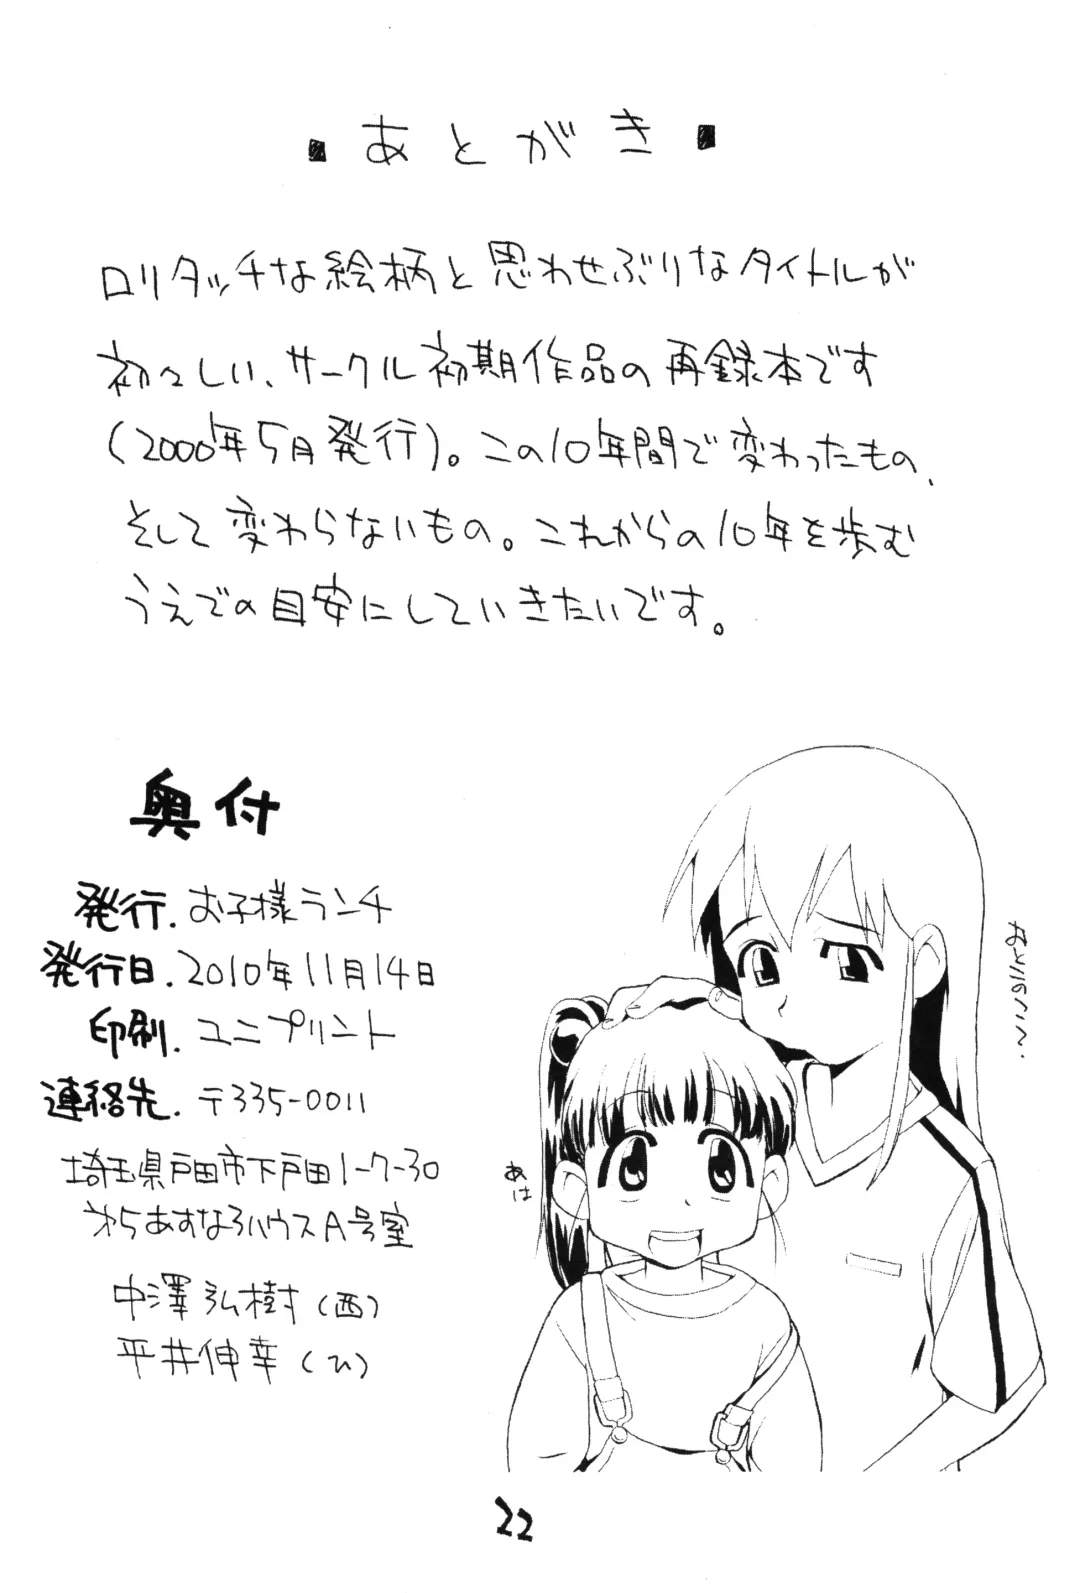 ■ あとがき ■
ロリタッチな絵柄と思わせぶりなタイトルが
初々しい、サークル初期作品の再録本です
(2000年5月発行)。この10年間で変わったもの、
そして変わらないもの。これからの10年を歩む
うえでの目安にしていきたいです。
奥付
発行. お子様ランチ
発行日. 2010年11月14日
印刷. ユニプリント
連絡先. 〒335-0011
埼玉県戸田市下戸田1-7-30
わらあすなろハウスA号室
中澤弘樹(西)
平井伸幸(ひ)
おとこのこ〜.
あは
22